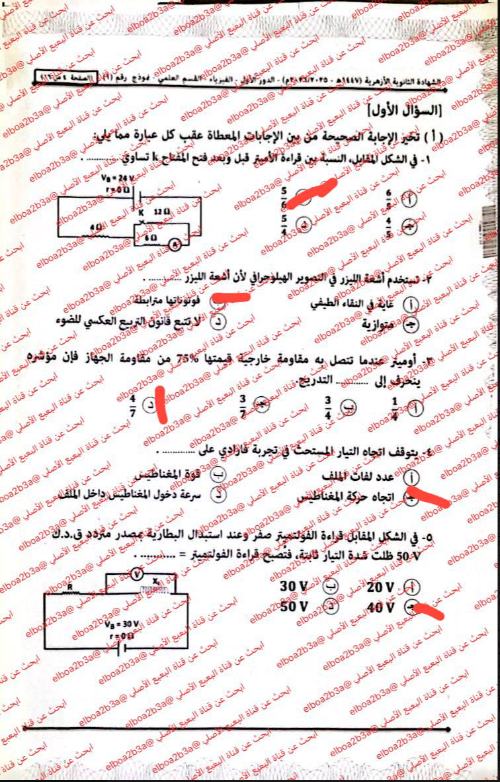 الشهادة الثانوية الأزهرية (١٤٤٧هـ - ٢٠٢٥/٢٠٢٦م) - الدور الأول - الفيزياء - القسم العلمي - نموذج رقم (٩)
[السؤال الأول]
(أ) تخير الإجابة الصحيحة من بين الإجابات المعطاة عقب كل عبارة مما يلي:
١- في الشكل المقابل، النسبة بين قراءة الأميتر قبل وبعد فتح المفتاح k تساوي ............
V_B = 24 V
r = 0 Ω
K 12 Ω
4 Ω
6 Ω
A
أ 6/5 ب 5/6
ج 4/5 د 5/4
٢- تستخدم أشعة الليزر في التصوير الهيلوجرافي لأن أشعة الليزر ............
أ غاية في النقاء الطيفي ب فوتوناتها مترابطة
ج متوازية د لا تتبع قانون التربيع العكسي للضوء
٣- أوميتر عندما تتصل به مقاومة خارجية قيمتها 75% من مقاومة الجهاز فإن مؤشره
ينحرف إلى ............ التدريج.
أ 1/4 ب 3/4 ج 3/7 د 4/7
٤- يتوقف اتجاه التيار المستحث في تجربة فارادي على ............
أ عدد لفات الملف ب قوة المغناطيس
ج اتجاه حركة المغناطيس د سرعة دخول المغناطيس داخل الملف
٥- في الشكل المقابل قراءة الفولتميتر صفر وعند استبدال البطارية بمصدر متردد ق.د.ك
50 V ظلت شدة التيار ثابتة، فتصبح قراءة الفولتميتر = ............
V
R
X_L
V_B = 30 V
r = 0 Ω
أ 20 V ب 30 V
ج 40 V د 50 V
ابحث عن قناة البعبع الأصلي @elboa2b3a